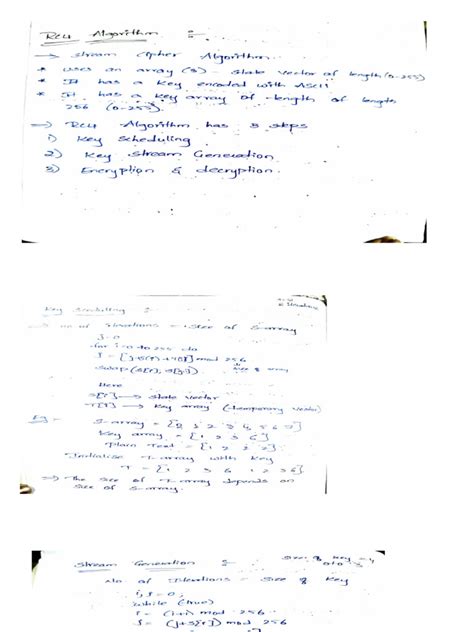 RC4 Algorithm :-
→ Stream Cipher Algorithm.
* Uses an array (S) - State vector of length (0-255)
* It has a key encoded with ASCII
* It has a key array of length of length
256 (0-255).
→ RC4 Algorithm has 3 steps
1) Key Scheduling
2) Key Stream Generation
3) Encryption & decryption.
Key Scheduling :-
→ no of Iterations = Size of S-array
j=0
for i=0 to 255 do
j = [j+S(i)+T(i)] mod 256
Swap (S[i], S[j])
Size of array
Here
S[i] → State vector
T[i] → Key array (temporary vector)
Eg :- S-array = {0 1 2 3 4 5 6 7}
Key array = {1 2 3 6}
Plain Text = {1 2 2 2}
Initialise T-array with key
T = {1 2 3 6 1 2 3 6}
⇒ The size of T-array depends on
size of S-array.
Stream Generation :-
Size of key = 4
0 to 3
No of Iterations = Size of Key
i, j = 0;
while (true)
i = (i+1) mod 256
j = (j+S[i]) mod 256